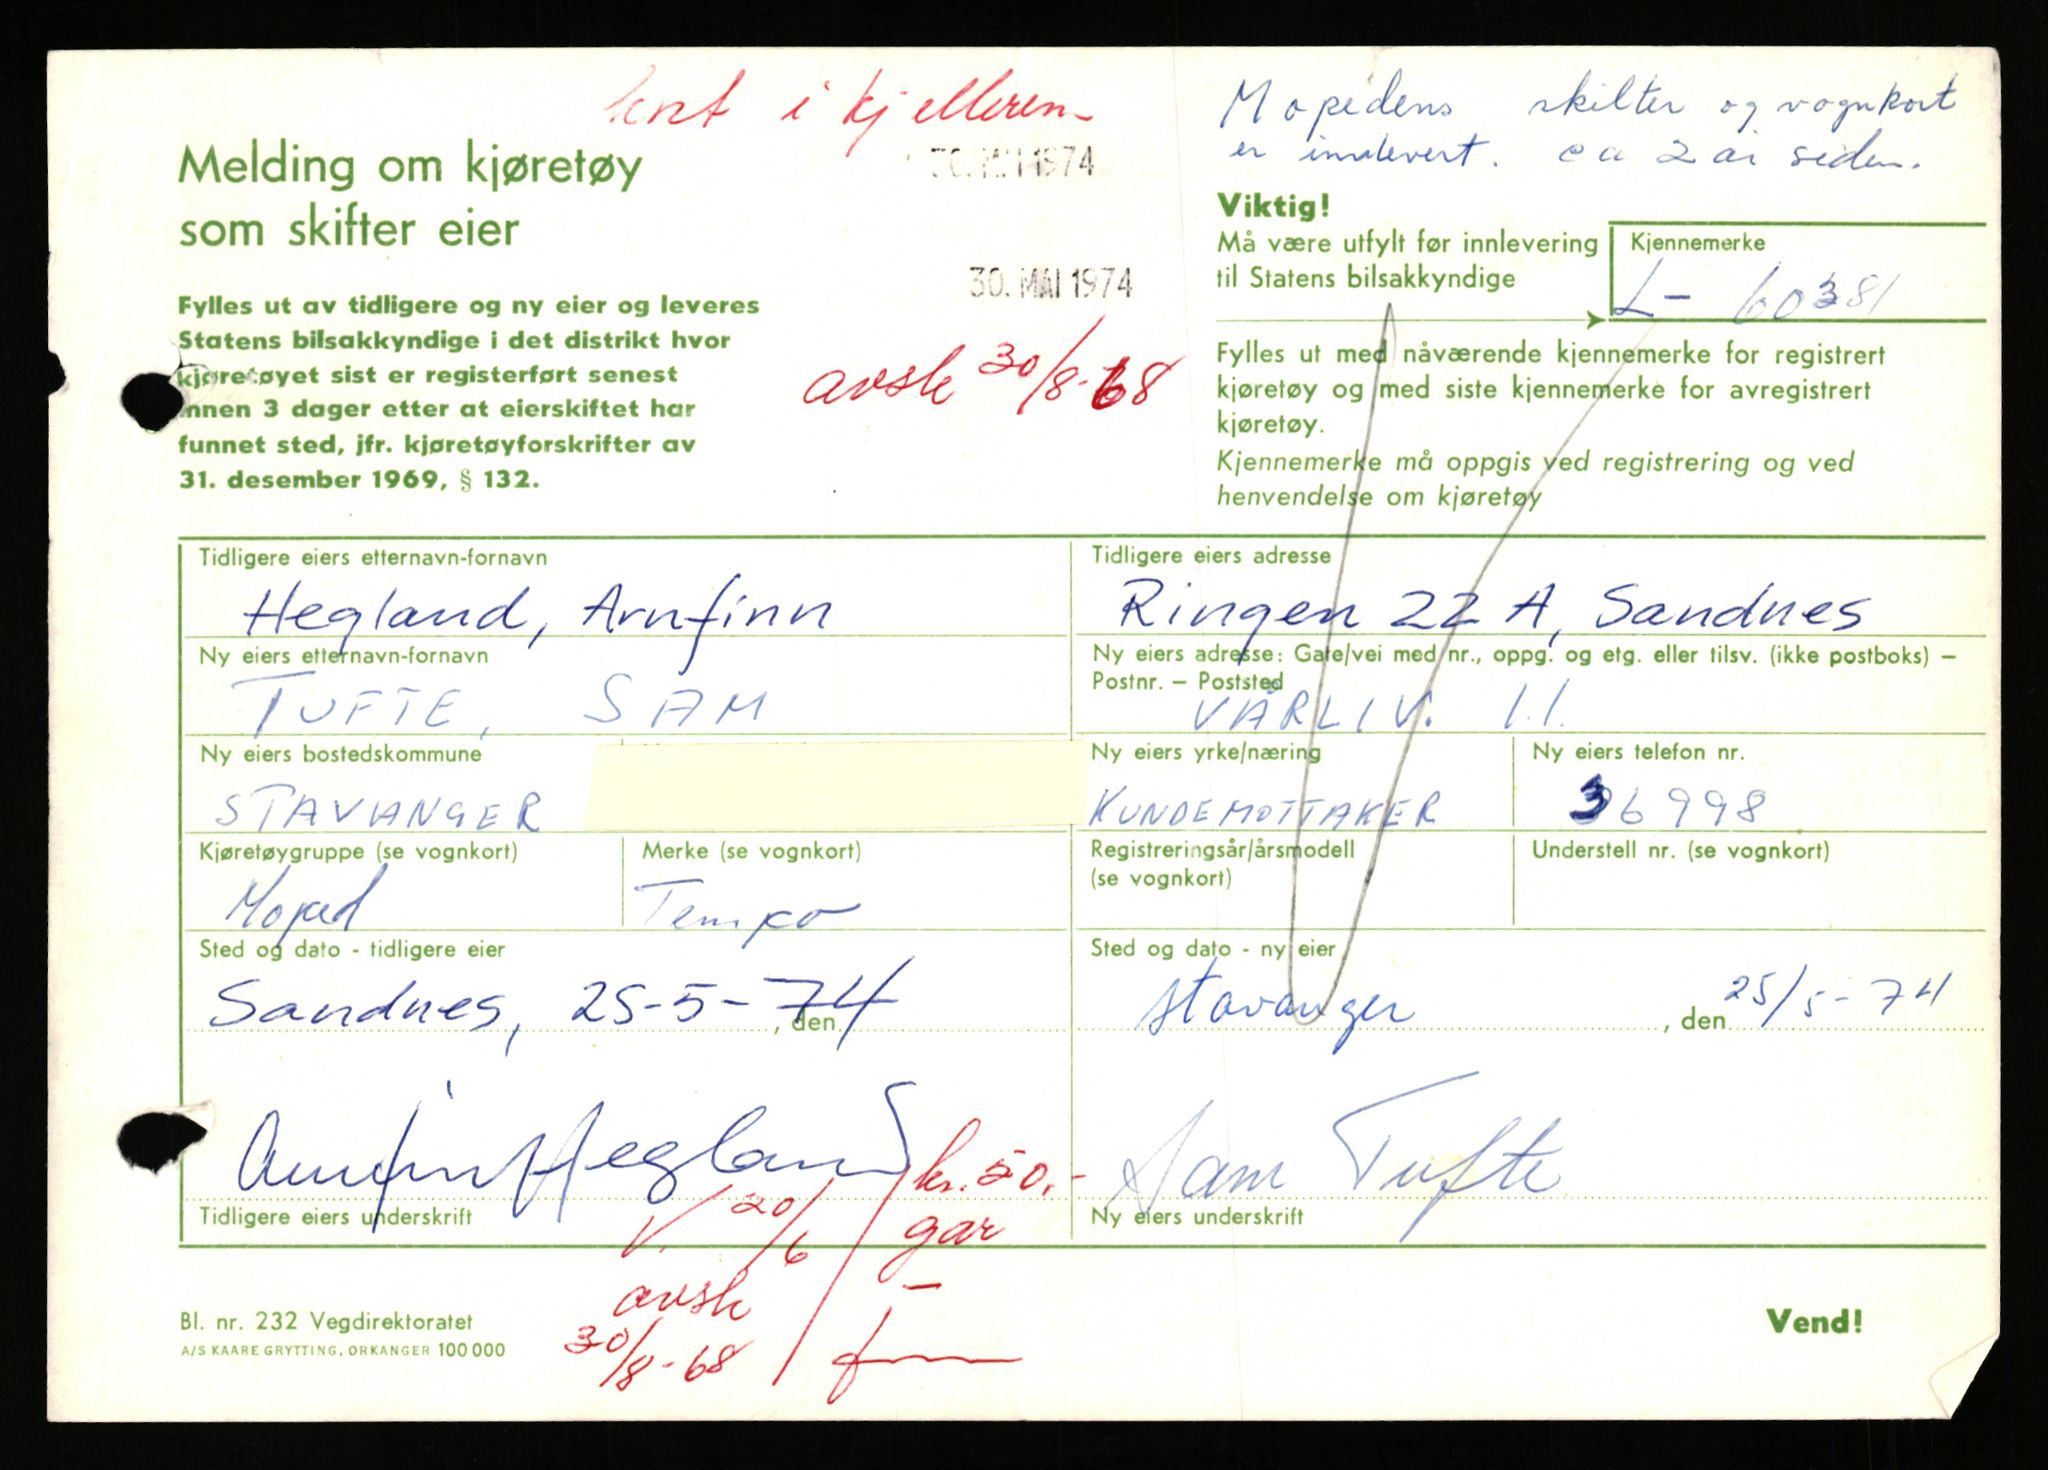 kort i kjelleren
Mopedens skilter og vognkort
er innlevert. ca 2 år siden.
Melding om kjøretøy
som skifter eier
30. MAI 1974
Viktig!
Må være utfylt før innlevering
til Statens bilsakkyndige
Kjennemerke
L- 60381
30. MAI 1974
Fylles ut av tidligere og ny eier og leveres
Statens bilsakkyndige i det distrikt hvor
kjøretøyet sist er registerført senest
innen 3 dager etter at eierskiftet har
funnet sted, jfr. kjøretøyforskrifter av
31. desember 1969, § 132.
avsk 30/8-68
Fylles ut med nåværende kjennemerke for registrert
kjøretøy og med siste kjennemerke for avregistrert
kjøretøy.
Kjennemerke må oppgis ved registrering og ved
henvendelse om kjøretøy
Tidligere eiers etternavn-fornavn
Hegland, Arnfinn
Tidligere eiers adresse
Ringen 22 A, Sandnes
Ny eiers etternavn-fornavn
TUFTE, SAM
Ny eiers adresse: Gate/vei med nr., oppg. og etg. eller tilsv. (ikke postboks) –
Postnr. – Poststed
VÅRLIV. 11.
Ny eiers bostedskommune
STAVANGER
Ny eiers yrke/næring
KUNDEMOTTAKER
Ny eiers telefon nr.
36998
Kjøretøygruppe (se vognkort)
Moped
Merke (se vognkort)
Tempo
Registreringsår/årsmodell
(se vognkort)
Understell nr. (se vognkort)
Sted og dato - tidligere eier
Sandnes, 25-5-74
, den
Sted og dato - ny eier
Stavanger , den 25/5-74
Arnfinn Hegland
Tidligere eiers underskrift
Sam Tufte
Ny eiers underskrift
kr. 50,-
V. 20/6
gar
-
avsk
30/8-68
Bl. nr. 232 Vegdirektoratet
A/S KAARE GRYTTING, ORKANGER 100 000
Vend!